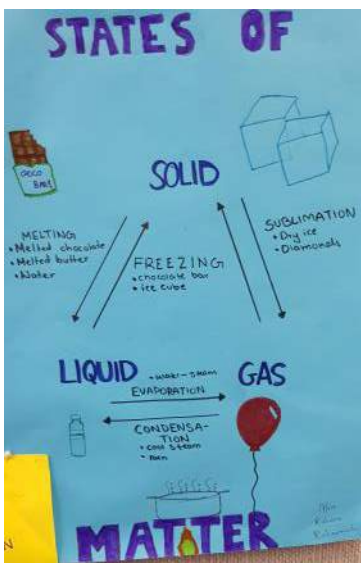 STATES OF
CHOCO
BAR
SOLID
MELTING
• Melted chocolate
• Melted butter
• Water
FREEZING
• chocolate bar
• ice cube
SUBLIMATION
• Dry ice
• Diamonds
LIQUID
• water-steam
EVAPORATION
GAS
CONDENSA-
TION
• Cold steam
• Rain
MATTER
N